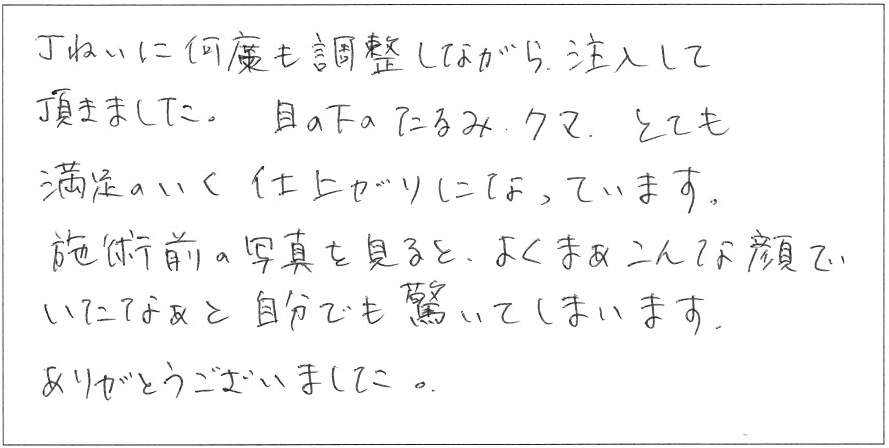 丁ねいに何度も調整しながら、注入して
頂きました。 目の下のたるみ、クマ、とても
満足のいく仕上がりになっています。
施術前の写真を見ると、よくまぁこんな顔で
いたなぁと自分でも驚いてしまいます。
ありがとうございました。